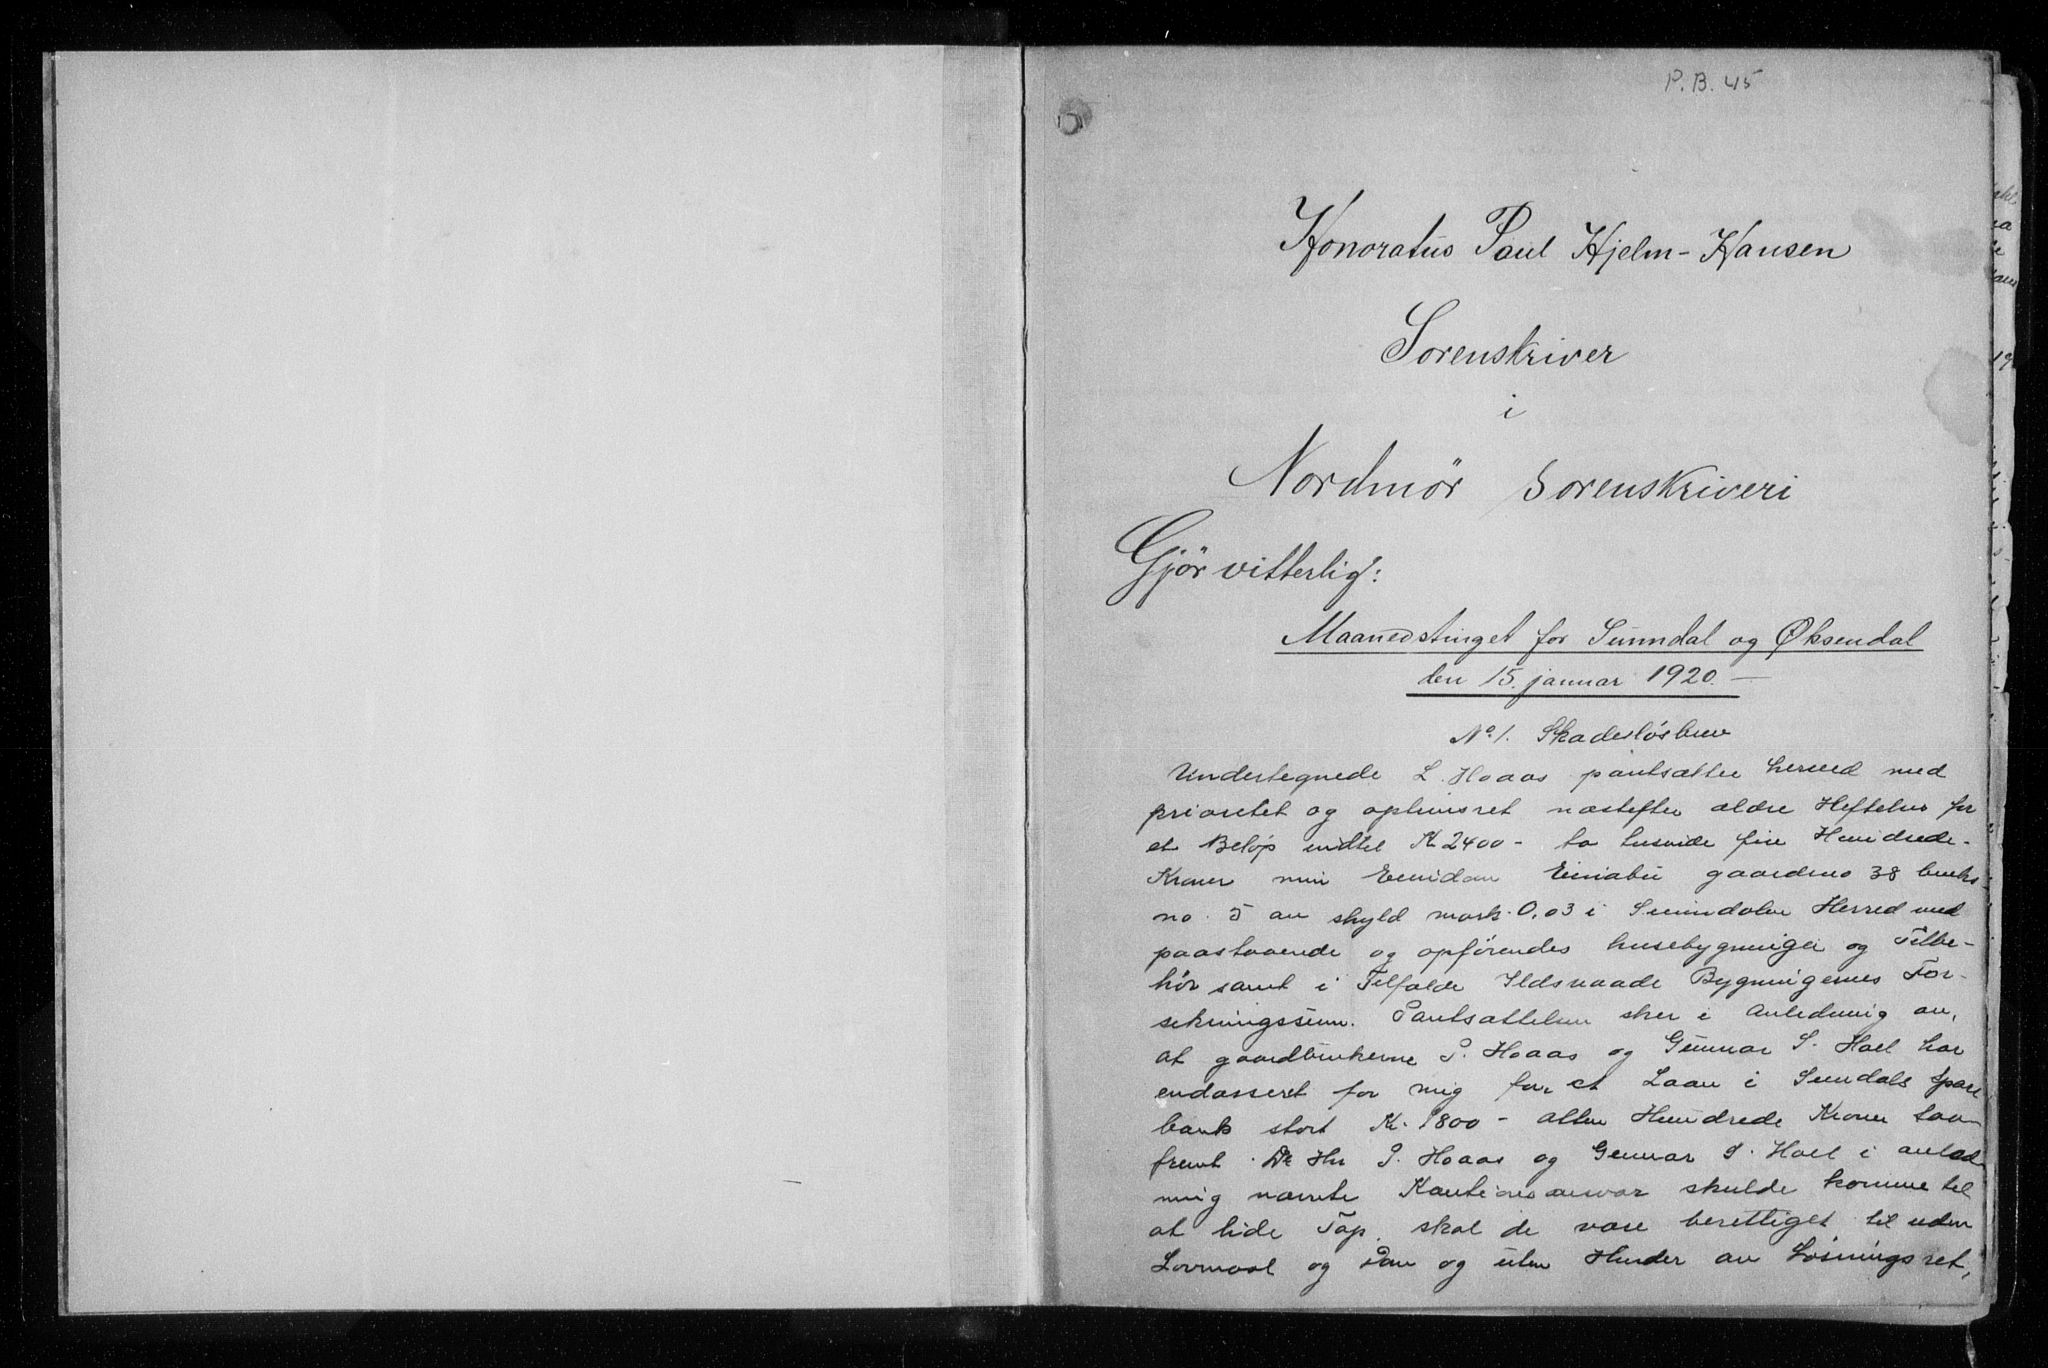 P.B. 45
Honoratus Paul Hjelm-Hansen
Sorenskriver
i
Nordmör Sorenskriveri
Gjör vitterlig:
Maanedstinget for Sunndal og Øksendal
den 15. januar 1920. —
No. 1. Skadesløsbrev
Undertegnede L. Hoaas pantsætter herved med
prioritet og opkinsret næstefter ældre Heftelser for
et Beløp indtil Kr 2400 - to tusinde fire Hundrede-
Kroner min Eiendom gaardsno 38 bruks
no. 5 av skyld mark. 0,03 i Sunndalen Herred med
paastaaende og opførendes husebygninger og Tilbe-
hör samt i Tilfælde Ildsvaade Bygningernes For-
sikringssum. Pantsættelsen sker i Anledning av,
at gaardbrukerne P. Hoaas og Gunnar S. Hoel har
endosseret for mig for et Laan i Sundals Spare
bank stort Kr. 1800 - atten Hundrede Kroner Saa-
fremt De Hrr P. Hoaas og Gunnar S. Hoel i anled-
ning nævnte Kautionsansvar skulde komme til
at lide Tap, skal de være berettiget til uden
Lovmaal og Dom og uten Hinder av Løsningsret,